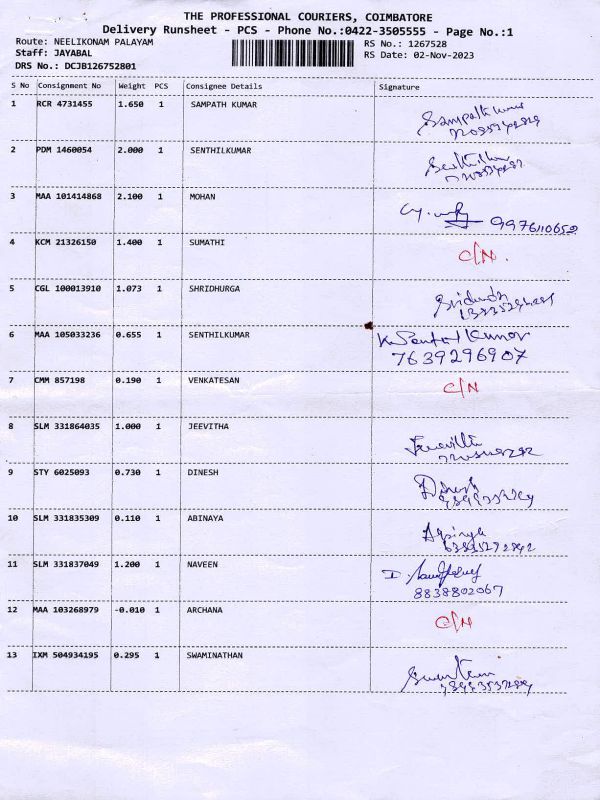 THE PROFESSIONAL COURIERS, COIMBATORE
Delivery Runsheet - PCS - Phone No.:0422-3505555 - Page No.:1
Route: NEELIKONAM PALAYAM RS No.: 1267528
Staff: JAYABAL RS Date: 02-Nov-2023
DRS No.: DCJB126752801
S No Consignment No Weight PCS Consignee Details Signature
1 RCR 4731455 1.650 1 SAMPATH KUMAR
Sampath Kumar
2 PDM 1460054 2.000 1 SENTHILKUMAR
3 MAA 101414868 2.100 1 MOHAN
9976110652
4 KCM 21326150 1.400 1 SUMATHI
C/N.
5 CGL 100013910 1.073 1 SHRIDHURGA
6 MAA 105033236 0.655 1 SENTHILKUMAR
7639296907
7 CMM 857198 0.190 1 VENKATESAN
C/N
8 SLM 331864035 1.000 1 JEEVITHA
9 STY 6025093 0.730 1 DINESH
Dinesh
10 SLM 331835309 0.110 1 ABINAYA
11 SLM 331837049 1.200 1 NAVEEN
8838802067
12 MAA 103268979 -0.010 1 ARCHANA
C/N
13 IXM 504934195 0.295 1 SWAMINATHAN